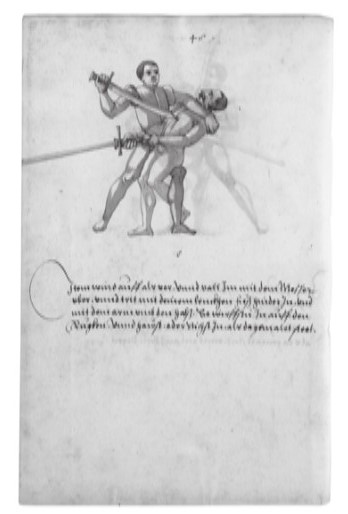 Item wind auff als vor vnnd vall Im mit dem Messer
vber vnnd trit mit deinem lincken fuß hinder In vnd
mit dem arm vmb den halß So wirffstu In auff den
Rugken vnnd haust oder stichst In als da gemalet steet.